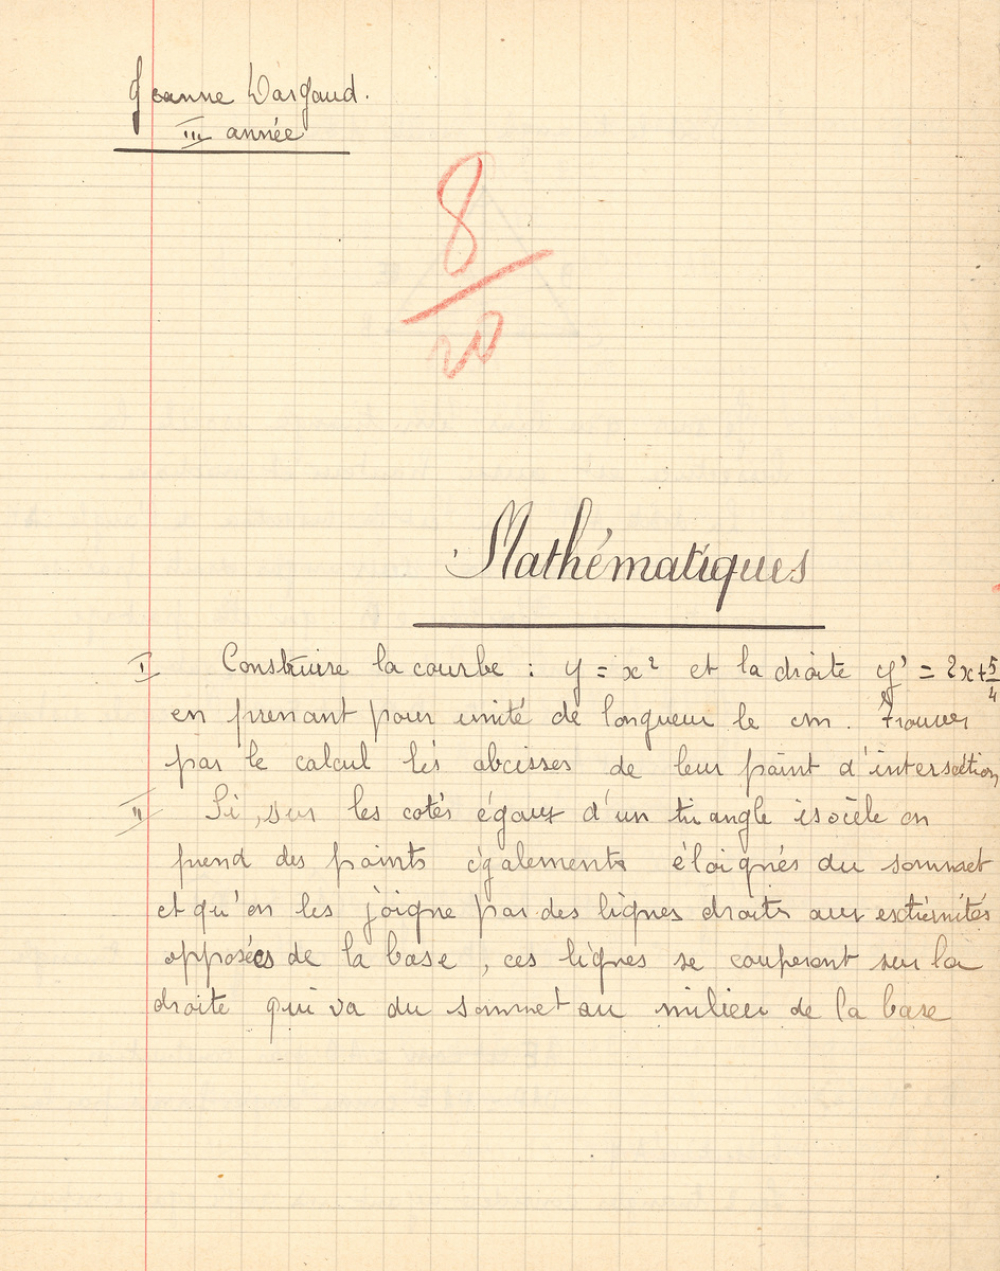 Jeanne Dargaud.
III année
8/20
Mathématiques
I Construire la courbe : y = x² et la droite y' = 2x+5/4
en prenant pour unité de longueur le cm. Trouver
par le calcul les abcisses de leur point d'intersection
II Si, sur les cotés égaux d'un triangle isocèle on
prend des points également éloignés du sommet
et qu'on les joigne par des lignes droites aux extrémités
opposées de la base, ces lignes se couperont sur la
droite qui va du sommet au milieu de la base